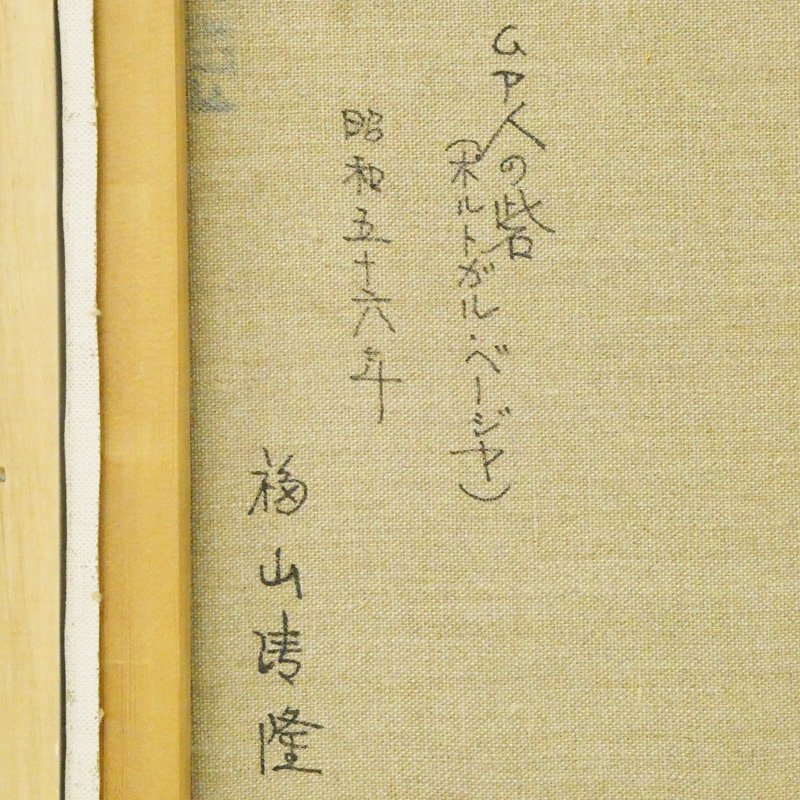 ムア人の砦
(ポルトガル・ベージャ)
昭和五十六年
福山清隆